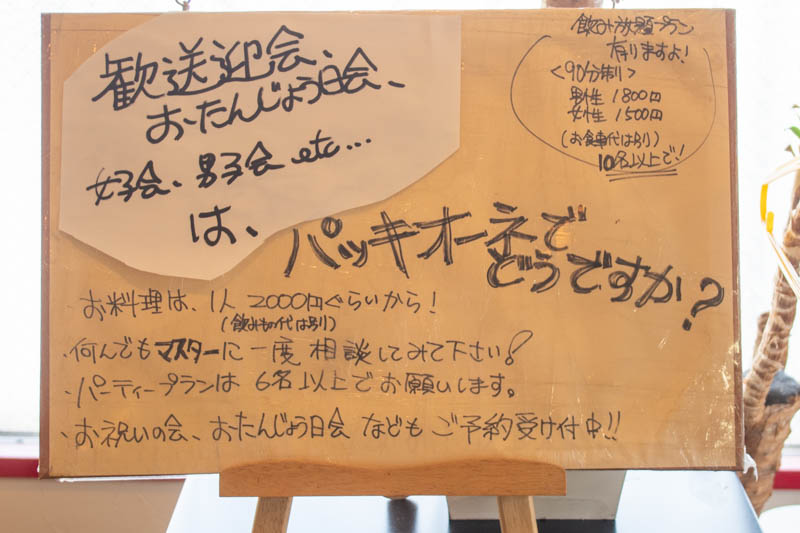 歓送迎会、
おたんじょう日会、
女子会、男子会 etc...
は、
パッキオーネで
どうですか?
飲み放題プラン
有りますよ!
<90分制り>
男性 1800円
女性 1500円
(お食事代は別)
10名以上で!
・お料理は、1人 2000円ぐらいから!
(飲み物代は別)
・何んでもマスターに一度 相談してみて下さい!
・パーティープランは 6名以上でお願いします。
・お祝いの会、おたんじょう日会 なども ご予約受け付中!!